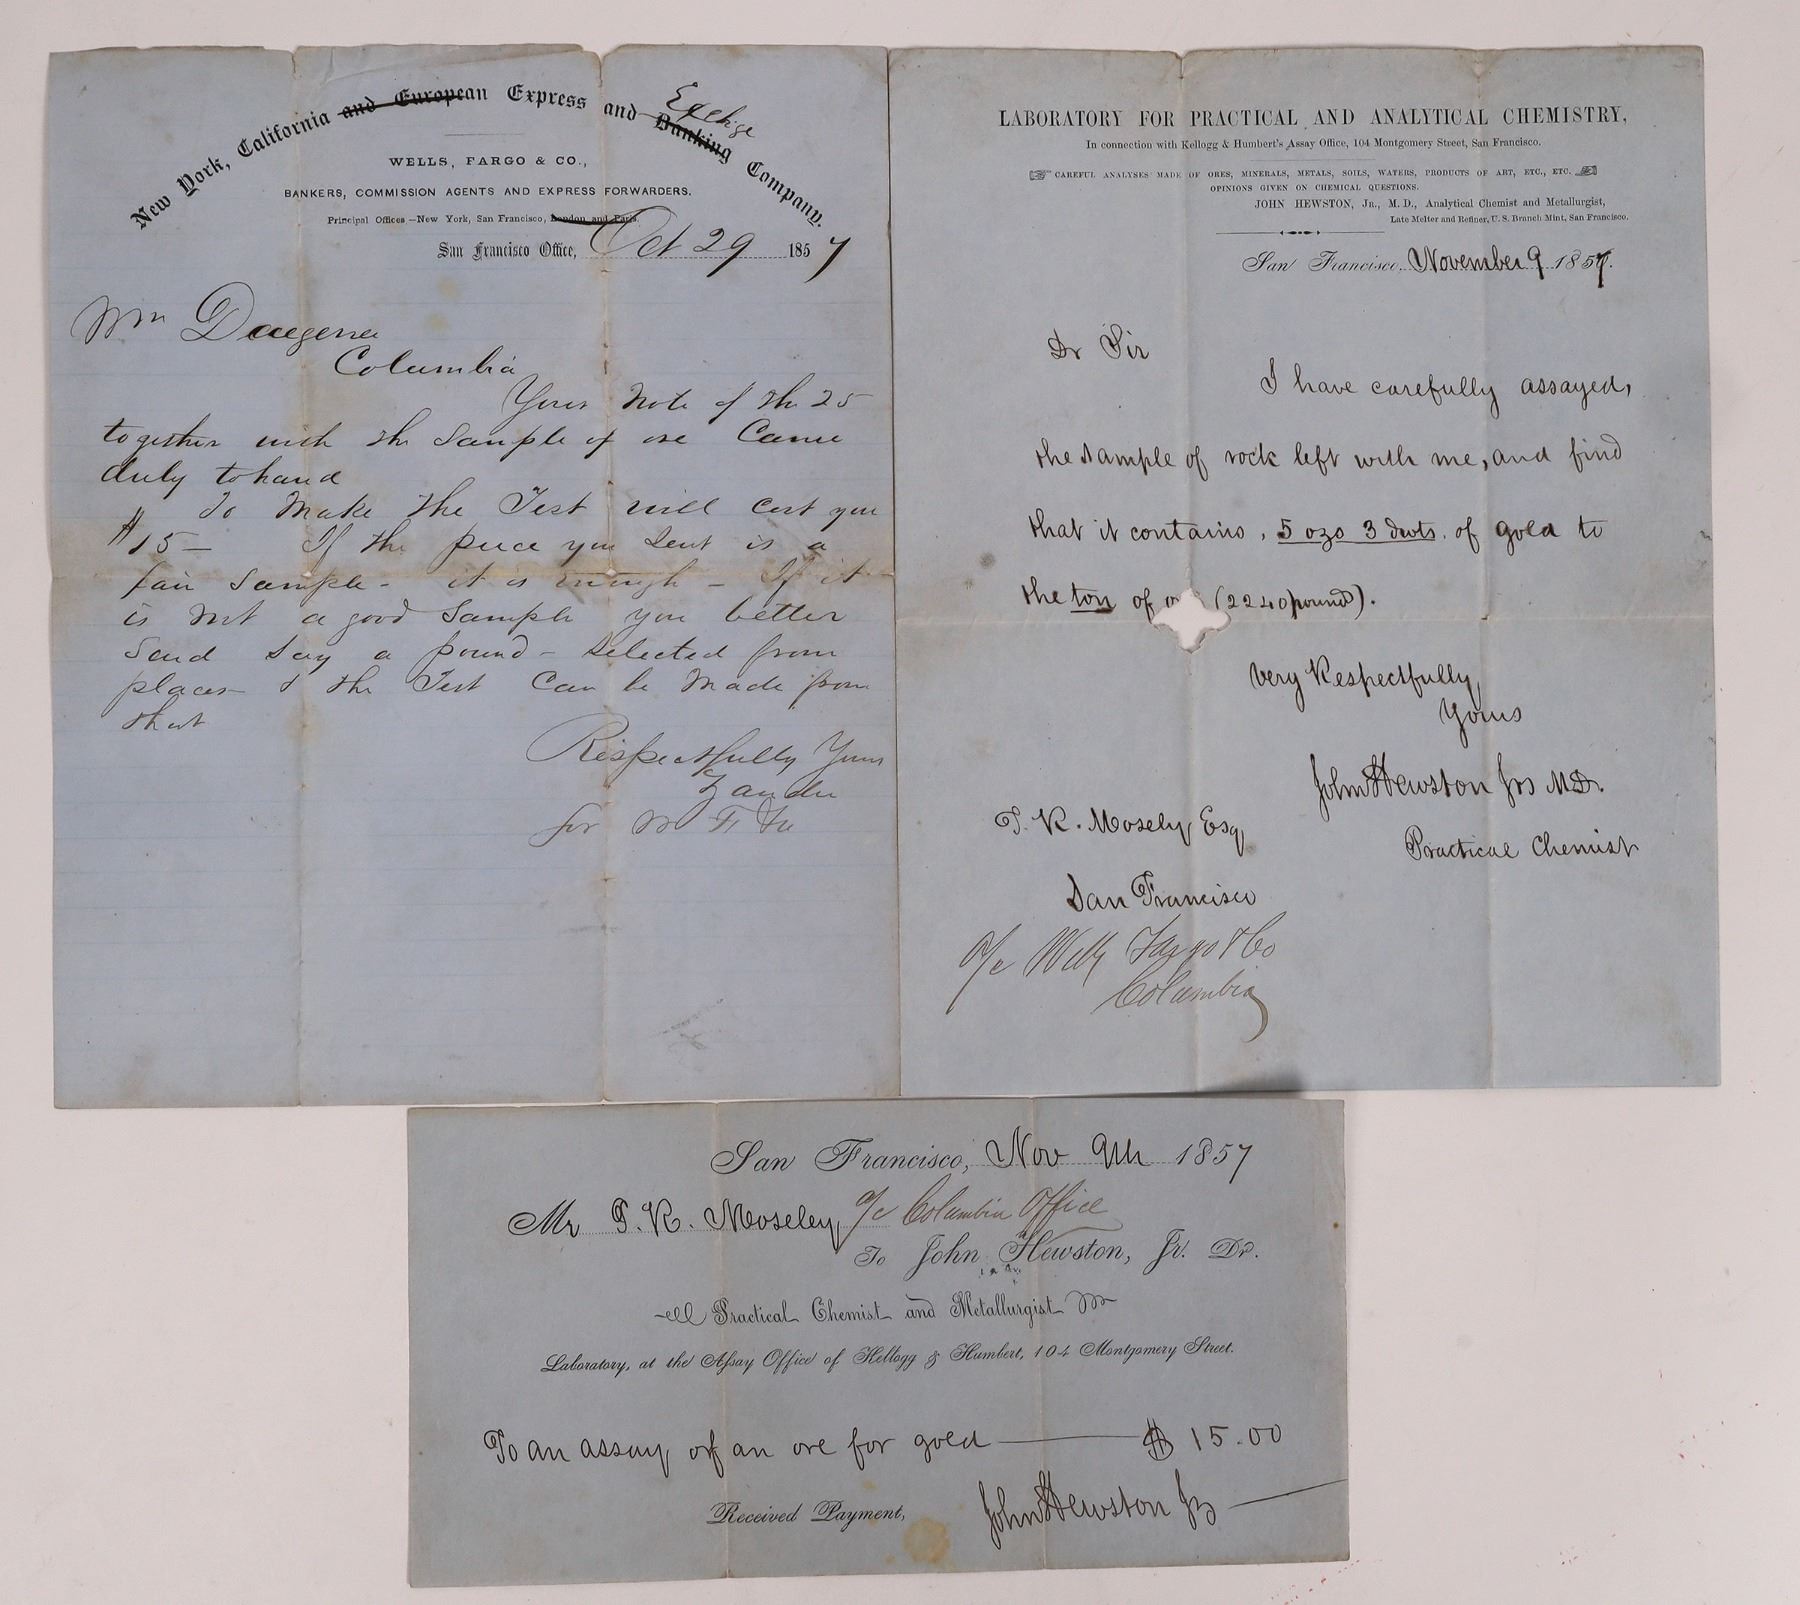 New York, California and European Express and Banking Company.
Exchge
WELLS, FARGO & CO.,
BANKERS, COMMISSION AGENTS AND EXPRESS FORWARDERS.
Principal Offices—New York, San Francisco, London and Paris.
San Francisco Office, Oct 29 1857
Wm Daegener
Columbia
Your Note of the 25
together with the Sample of ore Came
duly to hand
To Make the Test will cost you
$15— If the piece you sent is a
fair Sample - it is enough - If it
is not a good Sample you better
Send Say a pound - selected from
places & the Test Can be Made from
that
Respectfully Yours
for W F
LABORATORY FOR PRACTICAL AND ANALYTICAL CHEMISTRY,
In connection with Kellogg & Humbert's Assay Office, 104 Montgomery Street, San Francisco.
CAREFUL ANALYSES MADE OF ORES, MINERALS, METALS, SOILS, WATERS, PRODUCTS OF ART, ETC., ETC.
OPINIONS GIVEN ON CHEMICAL QUESTIONS.
JOHN HEWSTON, JR., M. D., Analytical Chemist and Metallurgist,
Late Melter and Refiner, U. S. Branch Mint, San Francisco.
San Francisco, November 9 1857.
Dr Sir
I have carefully assayed,
the sample of rock left with me, and find
that it contains, 5 ozs 3 dwts. of gold to
the ton of (2240 pounds).
Very Respectfully,
Yours
John Hewston Jr M.D.
Practical Chemist
T. R. Mosely Esq
San Francisco
a/c Wells Fargo & Co
Columbia
San Francisco, Nov 9th 1857
Mr T. R. Moseley a/c Columbia Office
To John Hewston, Jr. Dr.
Practical Chemist and Metallurgist
Laboratory, at the Assay Office of Kellogg & Humbert, 104 Montgomery Street.
To an assay of an ore for gold — $ 15.00
Received Payment, John Hewston Jr